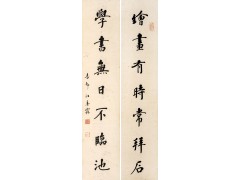 繪畫有時常拜石
學書無日不臨池